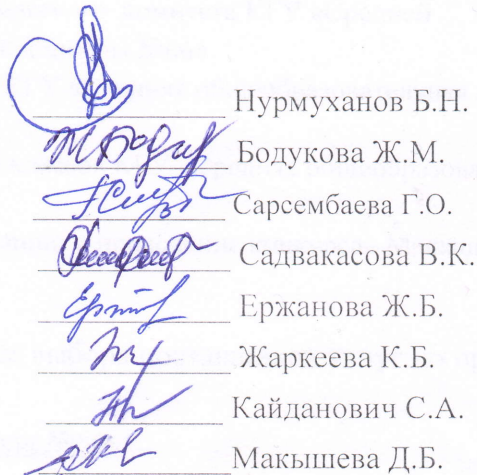 Нурмуханов Б.Н.
Бодукова Ж.М.
Сарсембаева Г.О.
Садвакасова В.К.
Ержанова Ж.Б.
Жаркеева К.Б.
Кайданович С.А.
Макышева Д.Б.